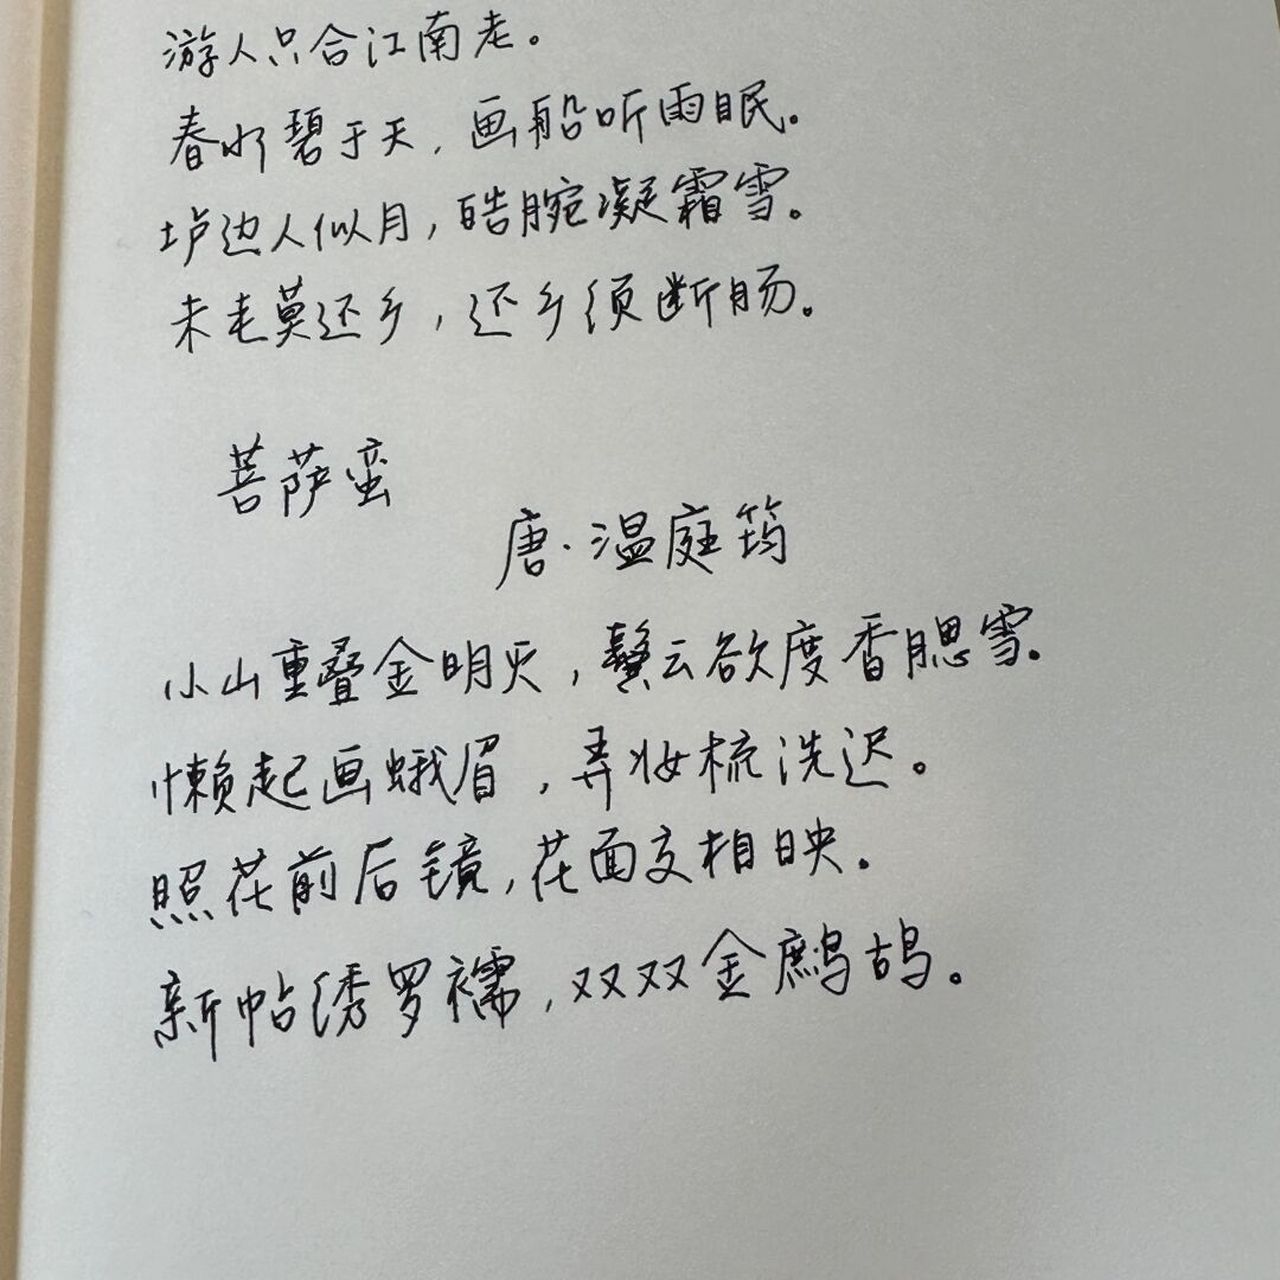 游人只合江南老。
春水碧于天，画船听雨眠。
垆边人似月，皓腕凝霜雪。
未老莫还乡，还乡须断肠。
菩萨蛮
唐·温庭筠
小山重叠金明灭，鬓云欲度香腮雪。
懒起画蛾眉，弄妆梳洗迟。
照花前后镜，花面交相映。
新帖绣罗襦，双双金鹧鸪。